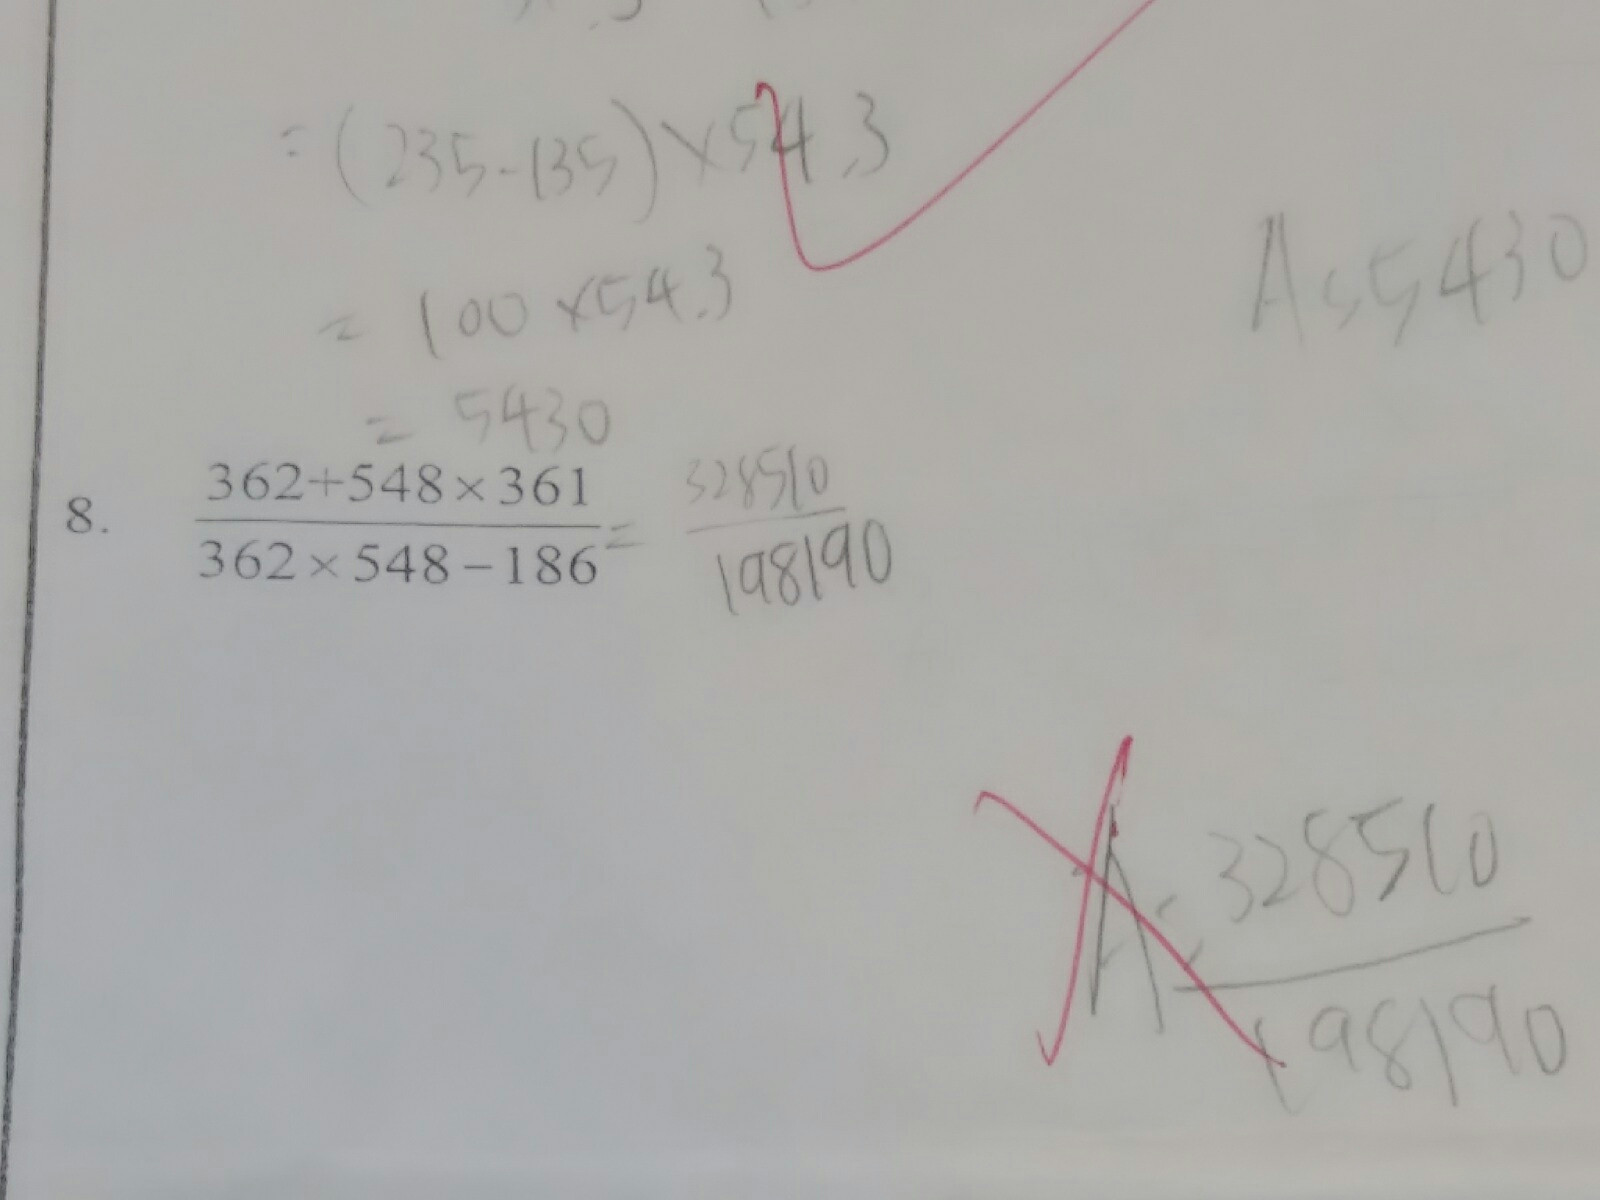 = (235-135) × 54.3
= 100 × 54.3
A: 5430
= 5430
8. 362+548×361 / 362×548-186 = 328510 / 198190
A: 328510 / 198190